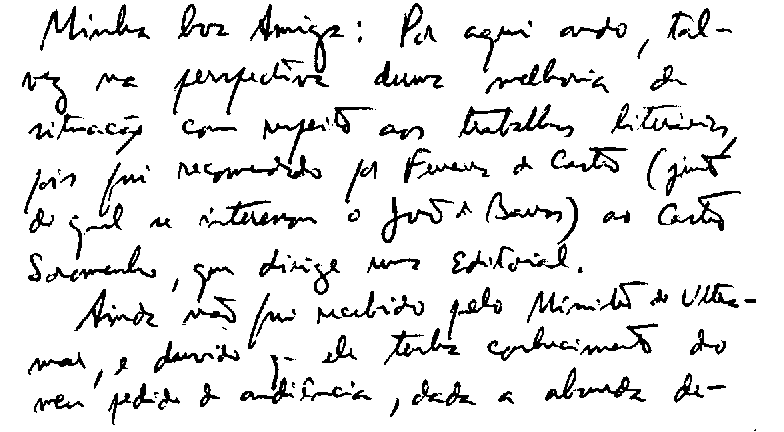 Minha boa Amiga: Por aqui ando, tal-
vez na perspectiva duma melhoria de
situação com respeito aos trabalhos literários,
pois fui recomendado por Ferreira de Castro (junto
do qual se interessou o João de Barros) ao Castro
Soromenho, que dirige uma Editorial.
Ainda não fui recebido pelo Ministro do Ultra-
mar, e duvido que ele tenha conhecimento do
meu pedido de audiência, dada a absurda de-